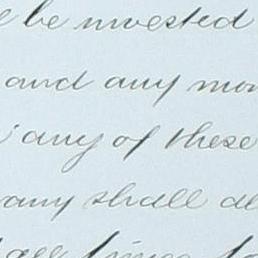 be invested
and any mon
any of these
any shall de